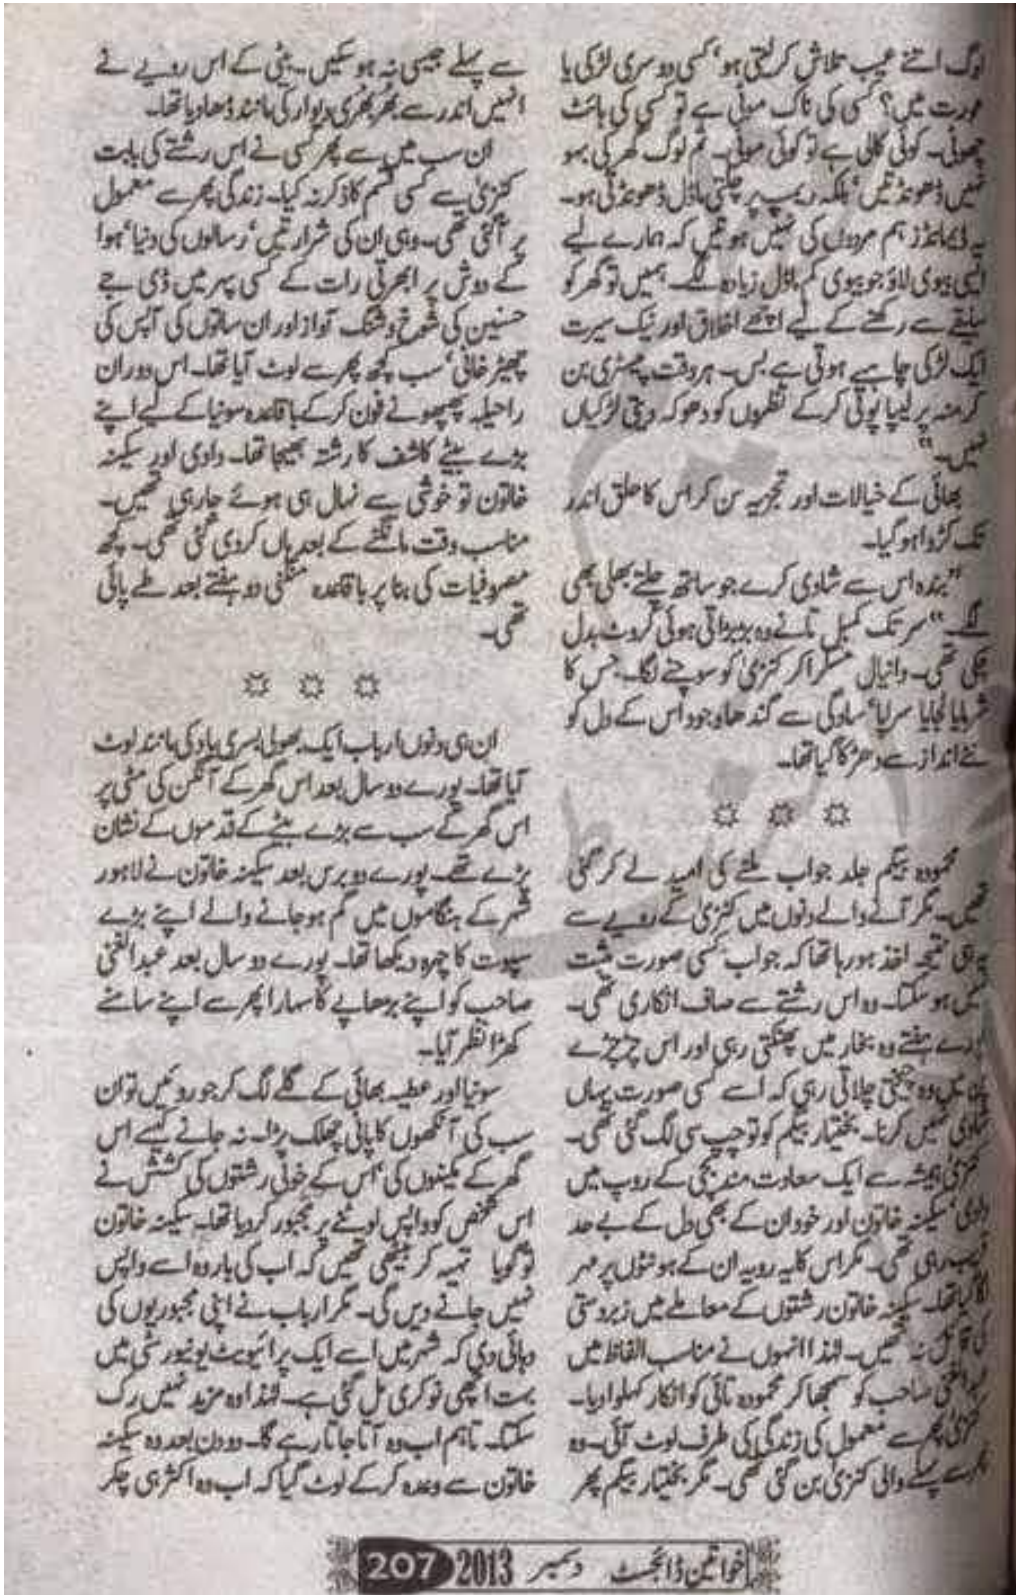 لوگ اتنے عیب تلاش کر لیتی ہو، کسی دوسری لڑکی یا
عورت میں؟ کسی کی ناک موٹی ہے تو کسی کی ہائٹ
چھوٹی۔ کوئی کالی ہے تو کوئی موٹی۔ تم لوگ گھر کی بہو
نہیں ڈھونڈتیں، بلکہ ریمپ پر چلتی ماڈل ڈھونڈتی ہو۔
یہ ڈیمانڈز ہم مردوں کی نہیں ہوتیں کہ ہمارے لیے
ایسی بیوی لاؤ جو بیوی کم ماڈل زیادہ لگے۔ ہمیں تو گھر کو
سلیقے سے رکھنے کے لیے اچھے اخلاق اور نیک سیرت
ایک لڑکی چاہیے ہوتی ہے بس۔ ہر وقت پیسٹری بن
کر منہ پر لیپا پوتی کرکے نظروں کو دھوکہ دیتی لڑکیاں
نہیں۔"
بھائی کے خیالات اور تجزیہ سن کر اس کا حلق اندر
تک کڑوا ہوگیا۔
"بندہ اس سے شادی کرے جو ساتھ چلتے بھلی بھی
لگے۔" سر تک کمبل تانے وہ بڑبڑاتی ہوئی کروٹ بدل
چکی تھی۔ دانیال مسکرا کر کنزیٰ کو سوچنے لگا۔ جس کا
شرمایا لجایا سراپا، سادگی سے گندھا وجود اس کے دل کو
نئے انداز سے دھڑکا گیا تھا۔
محمودہ بیگم جلد جواب ملنے کی امید لے کر گئی
تھیں۔ مگر آنے والے دنوں میں کنزیٰ کے رویے سے
یہی نتیجہ اخذ ہورہا تھا کہ جواب کسی صورت مثبت
نہیں ہوسکتا۔ وہ اس رشتے سے صاف انکاری تھی۔
پورے ہفتے وہ بخار میں پھنکتی رہی اور اس چڑچڑے
پن میں وہ چیختی چلاتی رہی کہ اسے کسی صورت یہاں
شادی نہیں کرنا۔ بختیار بیگم کو تو چپ سی لگ گئی تھی۔
کنزیٰ ہمیشہ سے ایک سعادت مند بچی کے روپ میں
دادی، سکینہ خاتون اور خود ان کے بھی دل کے بے حد
قریب رہی تھی۔ مگر اس کا یہ رویہ ان کے ہونٹوں پر مہر
لگا گیا تھا۔ سکینہ خاتون رشتوں کے معاملے میں زبردستی
کی قائل نہ تھیں۔ لہٰذا انہوں نے مناسب الفاظ میں
عبدالغنی صاحب کو سمجھا کر محمودہ تائی کو انکار کہلوا دیا۔
کنزیٰ پھر سے معمول کی زندگی کی طرف لوٹ آئی۔ وہ
پھر سے پہلے والی کنزیٰ بن گئی تھی۔ مگر بختیار بیگم پھر
سے پہلے جیسی نہ ہوسکیں۔ بیٹی کے اس رویے نے
انہیں اندر سے بھر بھری دیوار کی مانند ڈھا دیا تھا۔
ان سب میں سے پھر کسی نے اس رشتے کی بابت
کنزیٰ سے کسی قسم کا ذکر نہ کیا۔ زندگی پھر سے معمول
پر آگئی تھی۔ وہی ان کی شرارتیں، رسالوں کی دنیا، ہوا
کے دوش پر ابھرتی رات کے کسی پہر میں ڈی جے
حسنین کی شوخ و شنگ آواز اور ان ساتوں کی آپس کی
چھیڑ خانی، سب کچھ پھر سے لوٹ آیا تھا۔ اس دوران
راحیلہ پھپھو نے فون کرکے باقاعدہ سونیا کے لیے اپنے
بڑے بیٹے کاشف کا رشتہ بھیجا تھا۔ دادی اور سکینہ
خاتون تو خوشی سے نہال ہی ہوئے جارہی تھیں۔
مناسب وقت مانگنے کے بعد ہاں کردی گئی تھی۔ کچھ
مصروفیات کی بنا پر باقاعدہ منگنی دو ہفتے بعد طے پائی
تھی۔
ان ہی دنوں ارباب ایک بھولی بسری یاد کی مانند لوٹ
آیا تھا۔ پورے دو سال بعد اس گھر کے آنگن کی مٹی پر
اس گھر کے سب سے بڑے بیٹے کے قدموں کے نشان
پڑے تھے۔ پورے دو برس بعد سکینہ خاتون نے لاہور
شہر کے ہنگاموں میں گم ہوجانے والے اپنے بڑے
سپوت کا چہرہ دیکھا تھا۔ پورے دو سال بعد عبدالغنی
صاحب کو اپنے بڑھاپے کا سہارا پھر سے اپنے سامنے
کھڑا نظر آیا۔
سونیا اور عطیہ بھائی کے گلے لگ کر جو روئیں تو ان
سب کی آنکھوں کا پانی چھلک پڑا۔ نہ جانے کیسے اس
گھر کے مکینوں کی، اس کے خونی رشتوں کی کشش نے
اس شخص کو واپس لوٹنے پر مجبور کردیا تھا۔ سکینہ خاتون
تو گویا تہیہ کر بیٹھی تھیں کہ اب کی بار وہ اسے واپس
نہیں جانے دیں گی۔ مگر ارباب نے اپنی مجبوریوں کی
دہائی دی کہ شہر میں اسے ایک پرائیویٹ یونیورسٹی میں
بہت اچھی نوکری مل گئی ہے۔ لہٰذا وہ مزید نہیں رک
سکتا۔ تاہم اب وہ آتا جاتا رہے گا۔ دو دن بعد وہ سکینہ
خاتون سے وعدہ کرکے لوٹ گیا کہ اب وہ اکثر ہی چکر
خواتین ڈائجسٹ دسمبر 2013 207